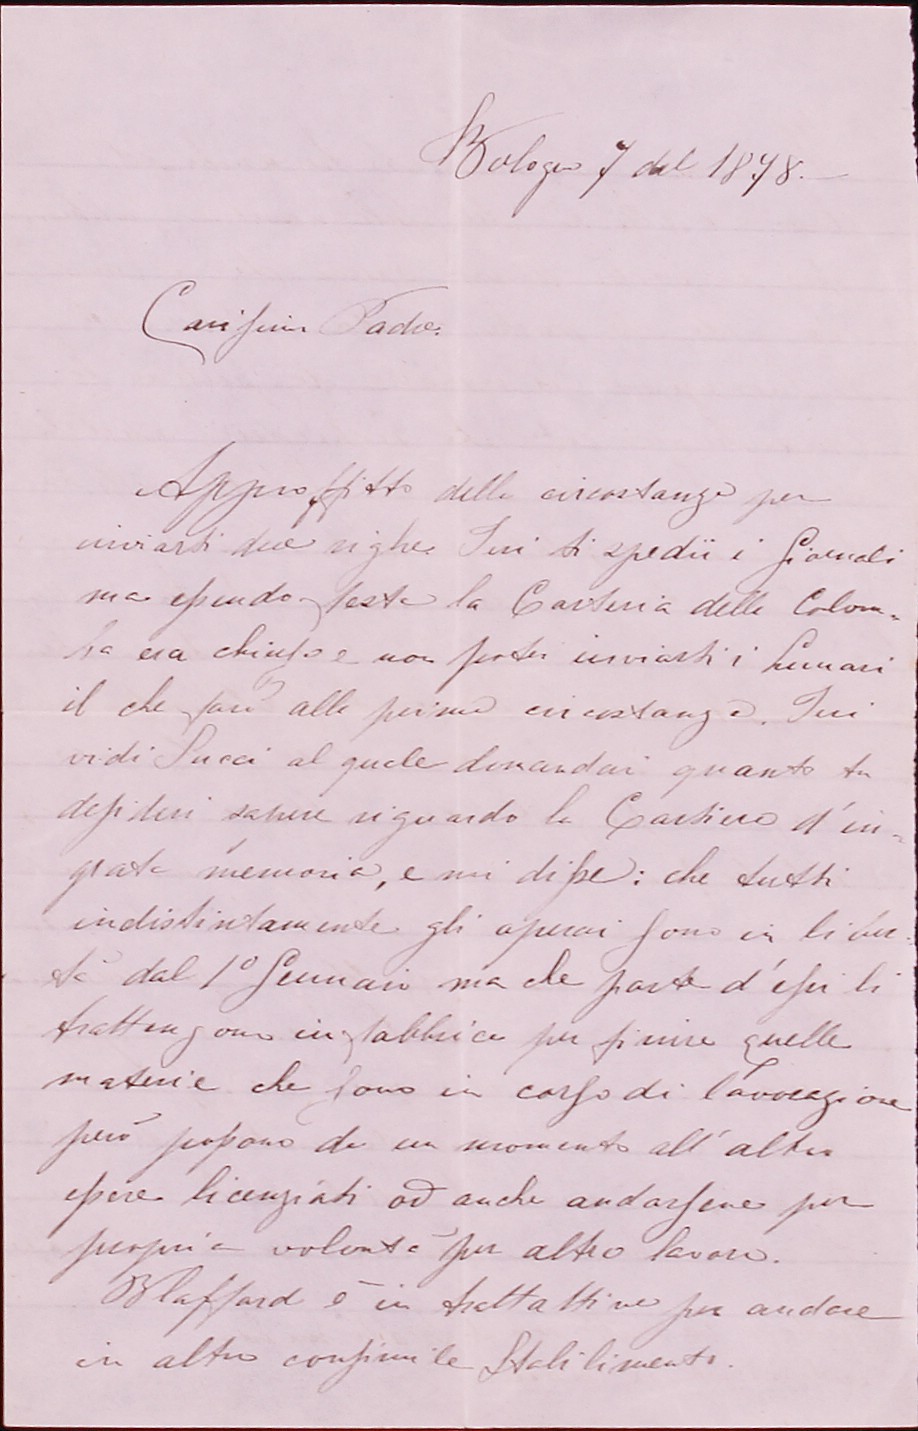 Bologna 7 del 1878.
Carissimo Padre.
Approffitto della circostanza per
inviarti due righe. Ieri ti spedii i Giornali
ma essendo festa la Carteria della Colom-
ba era chiusa e non potei inviarti i Lunari
il che farò alla prima circostanza. Ieri
vidi Succi al quale domandai quanto tu
desideri sapere riguardo la Cartiera d'in-
grata memoria, e mi disse: che tutti
indistintamente gli operai sono in liber-
tà dal 1º Gennaio ma che parte d'essi li
trattengono in fabbrica per finire quelle
materie che sono in corso di lavorazione
però possono da un momento all'altro
essere licenziati od anche andarsene per
propria volontà per altro lavoro.
è in trattattive per andare
in altro consimile Stabilimento.